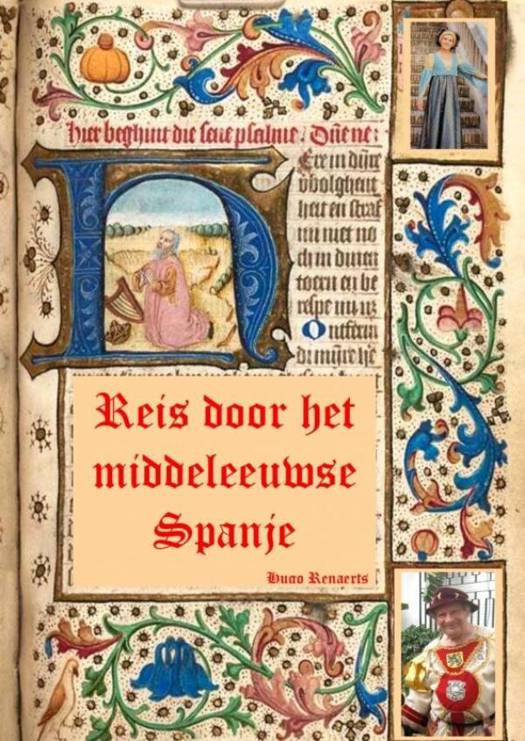 hier beghint die seue psalme. Dñe ne:
Ere in dijne
vbolgheit
heit en straf
mi niet no
ch in dinen
toern en be
respe mi nz
Ontferm
di mijre hē
Reis door het
middeleeuwse
Spanje
Hugo Renaerts